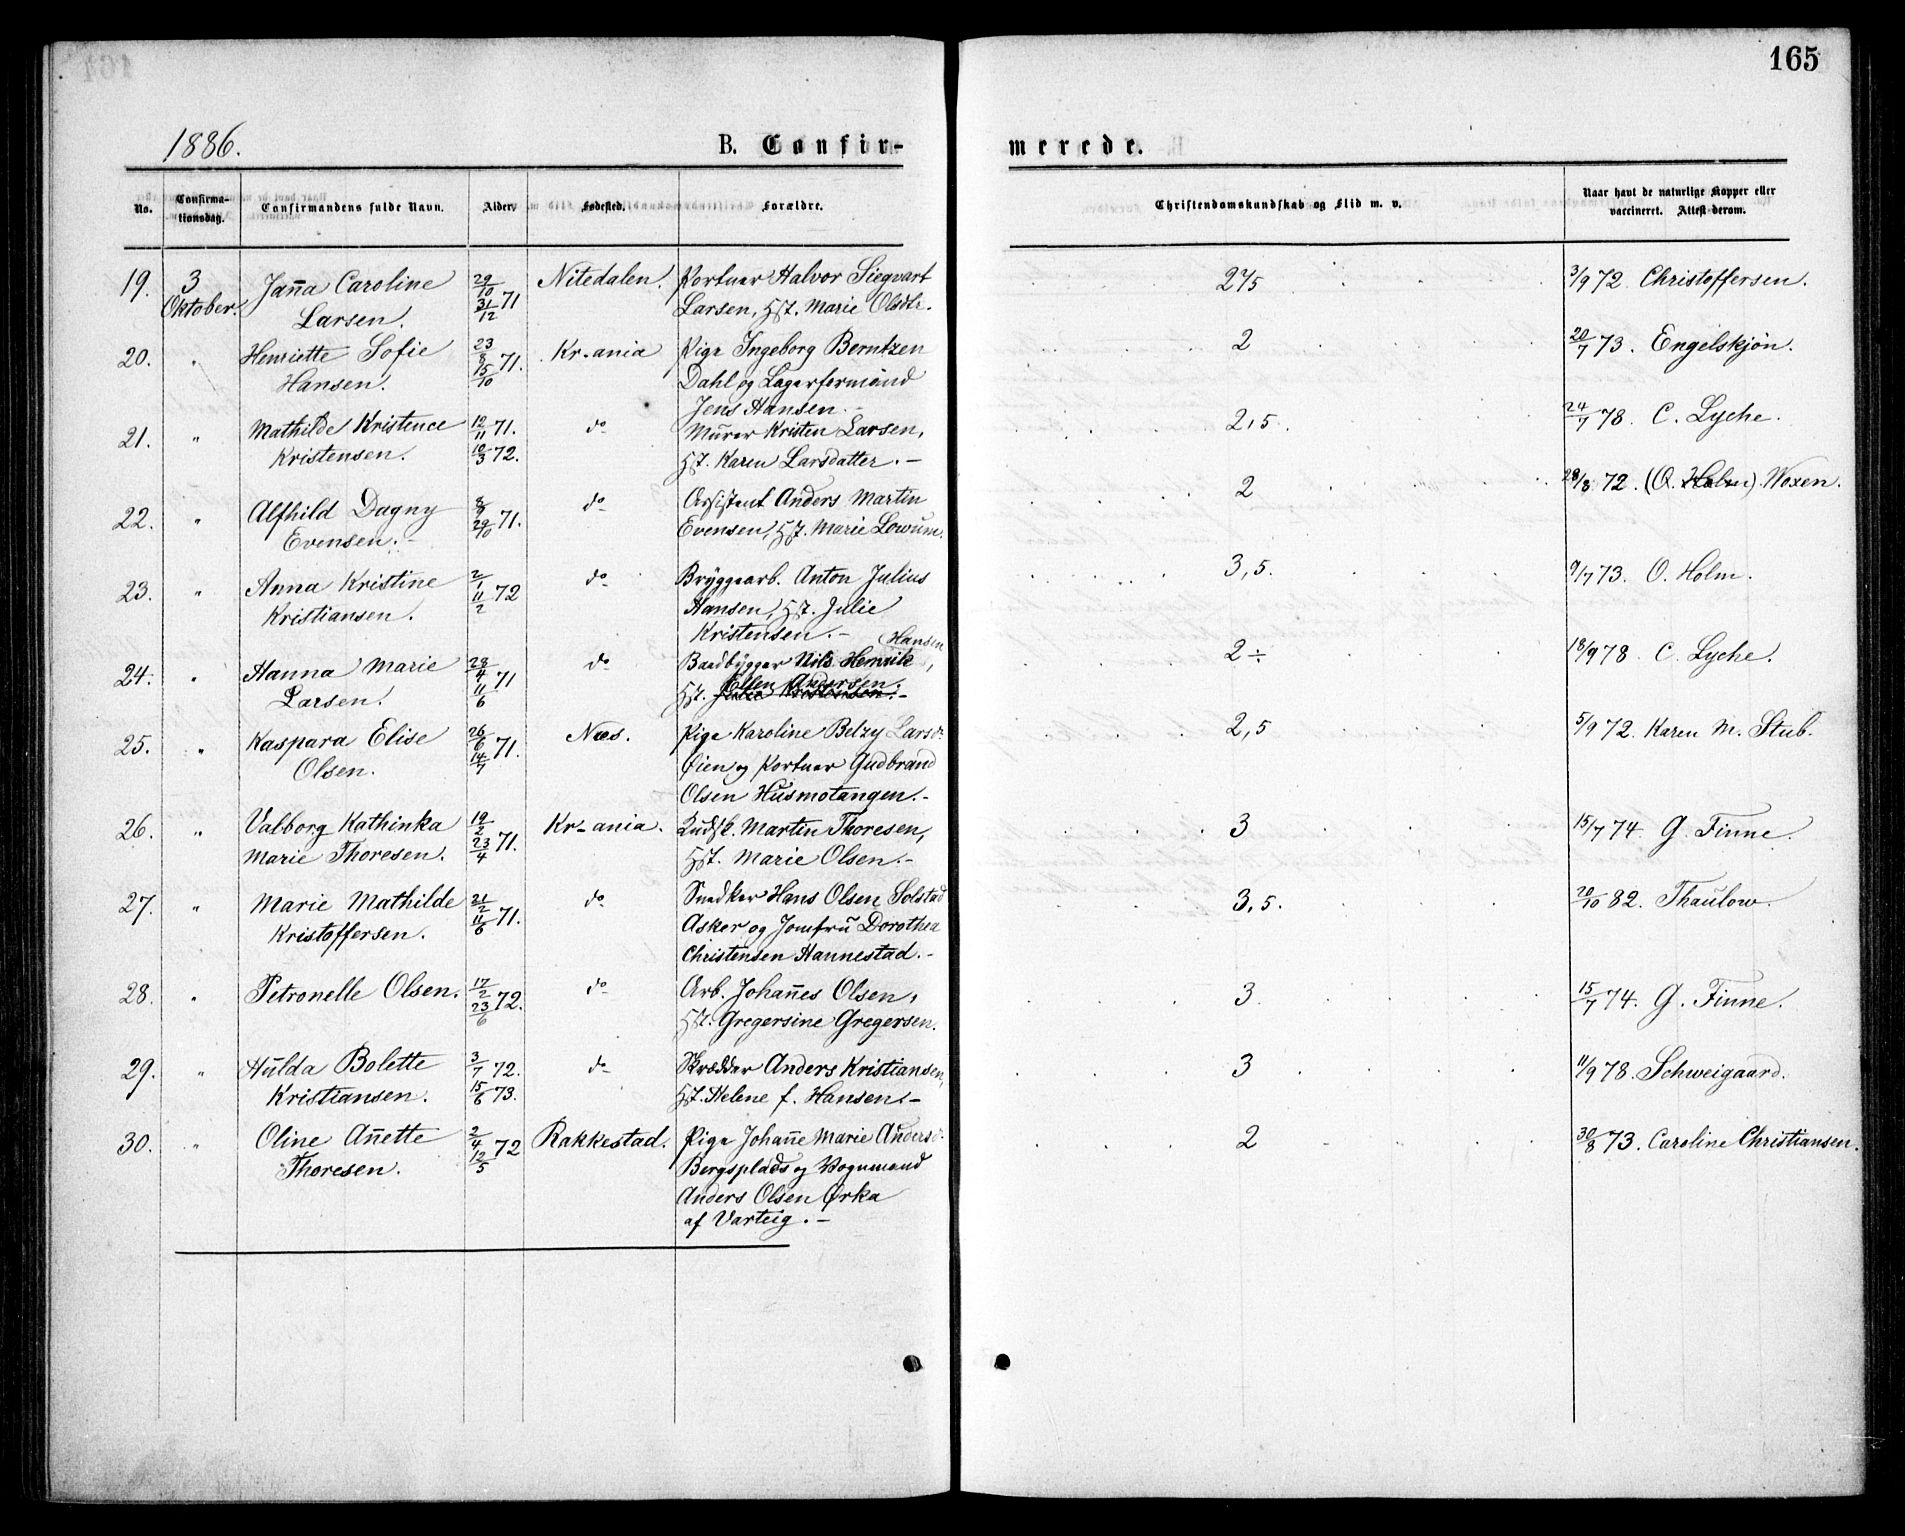 165
1886.
B. Confir-
merede.
No.
Confirma-
tionsdag.
Confirmandens fulde Navn.
Alder.
Fødested.
Forældre.
Christendomskundskab og Flid m. v.
Naar havt de naturlige Kopper eller
vaccineret. Attest derom.
19. 3 Jan̄a Caroline 29/10 71 Nitedalen. Portner Halvor Siegvart 2,75 3/9 72. Christoffersen.
Oktober. Larsen. 31/12 Larsen, Hst. Marie Olsdtr.
20. " Henriette Sofie 23/8 71. Kr-ania Pige Ingeborg Berntzen 2 20/7 73. Engelskjøn.
Hansen. 15/10 Dahl og Lagerformand
Jens Hansen.-
21. " Mathilde Kristence 12/11 71. do Murer Kristen Larsen, 2,5. 24/7 78. C. Lyche.
Kristensen. 10/3 72. Hst. Karen Larsdatter.-
22. " Alfhild Dagny 8/8 71. do Assistent Anders Martin 2 28/8 72. (O. Holm). Woxen.
Evensen.- 29/10 Evensen, Hst. Marie Lowum.
23. " Anna Kristine 2/1 72 do Bryggearb. Anton Julius 3,5. 9/7 73. O. Holm.
Kristiansen. 11/2 Hansen, Hst. Julie
Kristensen.-
Hansen
24. " Hanna Marie 28/4 71 do Baadbygger Nils Henrik, 2÷ 18/9 78. C. Lyche.
Ellen Andersen.
Larsen. 11/6 Hst. Julie Kristensen.-
25. " Kaspara Elise 26/6 71. Næs. Pige Karoline Belzy Larsd. 2,5 5/9 72. Karen M. Stub.
Olsen. 14/7 Øien og Portner Gudbrand
Olsen Husmotangen.-
26. " Valborg Kathinka 19/2 71. Kr-ania. Kudsk. Martin Thoresen, 3 15/7 74. G. Finne.
Marie Thoresen. 23/4 Hst. Marie Olsen.-
27. " Marie Mathilde 21/2 71. do Snedker Hans Olsen Solstad 3,5. 20/10 82. Thaulow.
Kristoffersen. 11/6 Asker og Jomfru Dorothea
Christensen Hannestad.-
28. " Petronelle Olsen. 17/2 72. do Arb. Johan̄es Olsen, 3 15/7 74. G. Finne.
23/6 Hst. Gregersine Gregersen.
29. " Hulda Bolette 3/7 72. do Skrædder Anders Kristiansen, 3 11/9 78. Schweigaard.
Kristiansen. 15/6 73. Hst. Helene f. Hansen.-
30. " Oline An̄ette 2/4 72 Rakkestad. Pige Johan̄e Marie Andersd. 2 30/8 73. Caroline Christiansen.
Thoresen. 12/5 Bergsplads og Vognmand
Anders Olsen Ørka
af Varteig.-